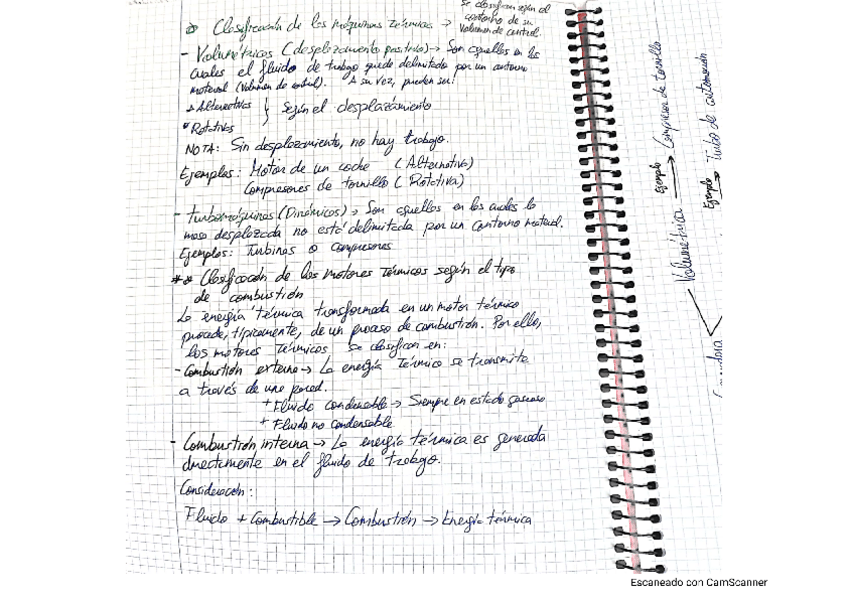 Clasificación de las máquinas térmicas →
Se clasifican según el
contorno de su
Volumen de control.
- Volumétricas (desplazamiento positivo) → Son aquellas en las
cuales el fluido de trabajo queda delimitado por un contorno
material (Volumen de control). A su vez, pueden ser:
Alternativas
Según el desplazamiento
Rotativas
NOTA: Sin desplazamiento, no hay trabajo.
Ejemplos: Motor de un coche (Alternativa)
Compresores de tornillo (Rotativa)
- Turbomáquinas (Dinámicas) → Son aquellas en las cuales la
masa desplazada no está delimitada por un contorno material.
Ejemplos: Turbinas o compresores
Clasificación de los motores térmicos según el tipo
de combustión
La energía térmica transformada en un motor térmico
procede, típicamente, de un proceso de combustión. Por ello,
los motores térmicos se clasifican en:
- Combustión externa → La energía térmica se transmite
a través de una pared.
+ Fluido condensable → Siempre en estado gaseoso
+ Fluido no condensable
- Combustión interna → La energía térmica es generada
directamente en el fluido de trabajo.
Consideración:
Fluido + Combustible → Combustión → Energía térmica
Volumétrica → Compresor de tornillo
Ejemplo
Ejemplo → Turbo de
Escaneado con CamScanner